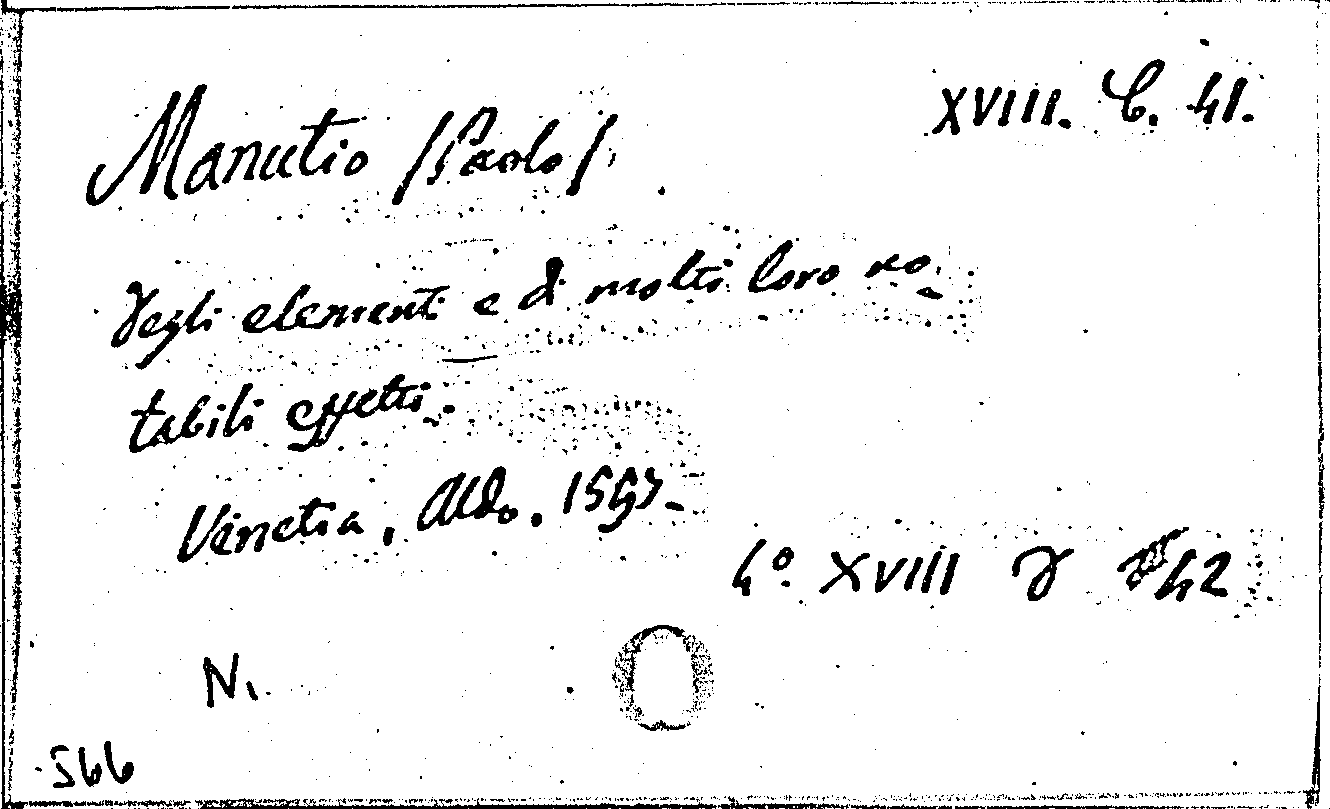 XVIII. C. 41.
Manutio (Paolo).
Degli elementi e di molti loro no-
tabili effetti.
Venetia, Aldo. 1557.
4° XVIII D 42
N.
566